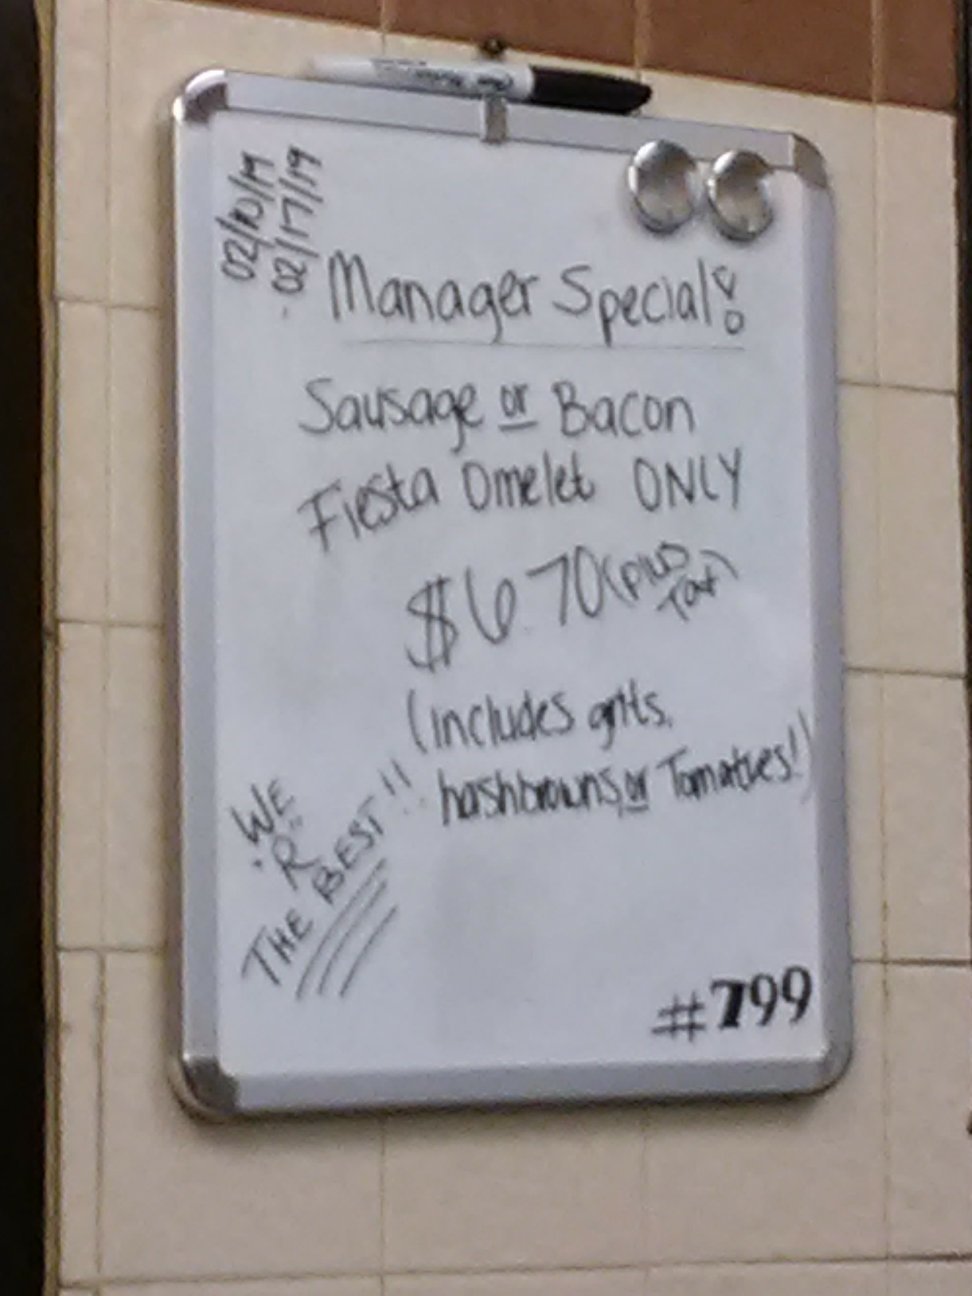 02/10/19
02/17/19
Manager Special!
Sausage or Bacon
Fiesta Omelet ONLY
$6.70 (plus
Tax)
(includes grits,
hashbrowns, or Tomatoes!)
WE
"R"
THE BEST!!
#799